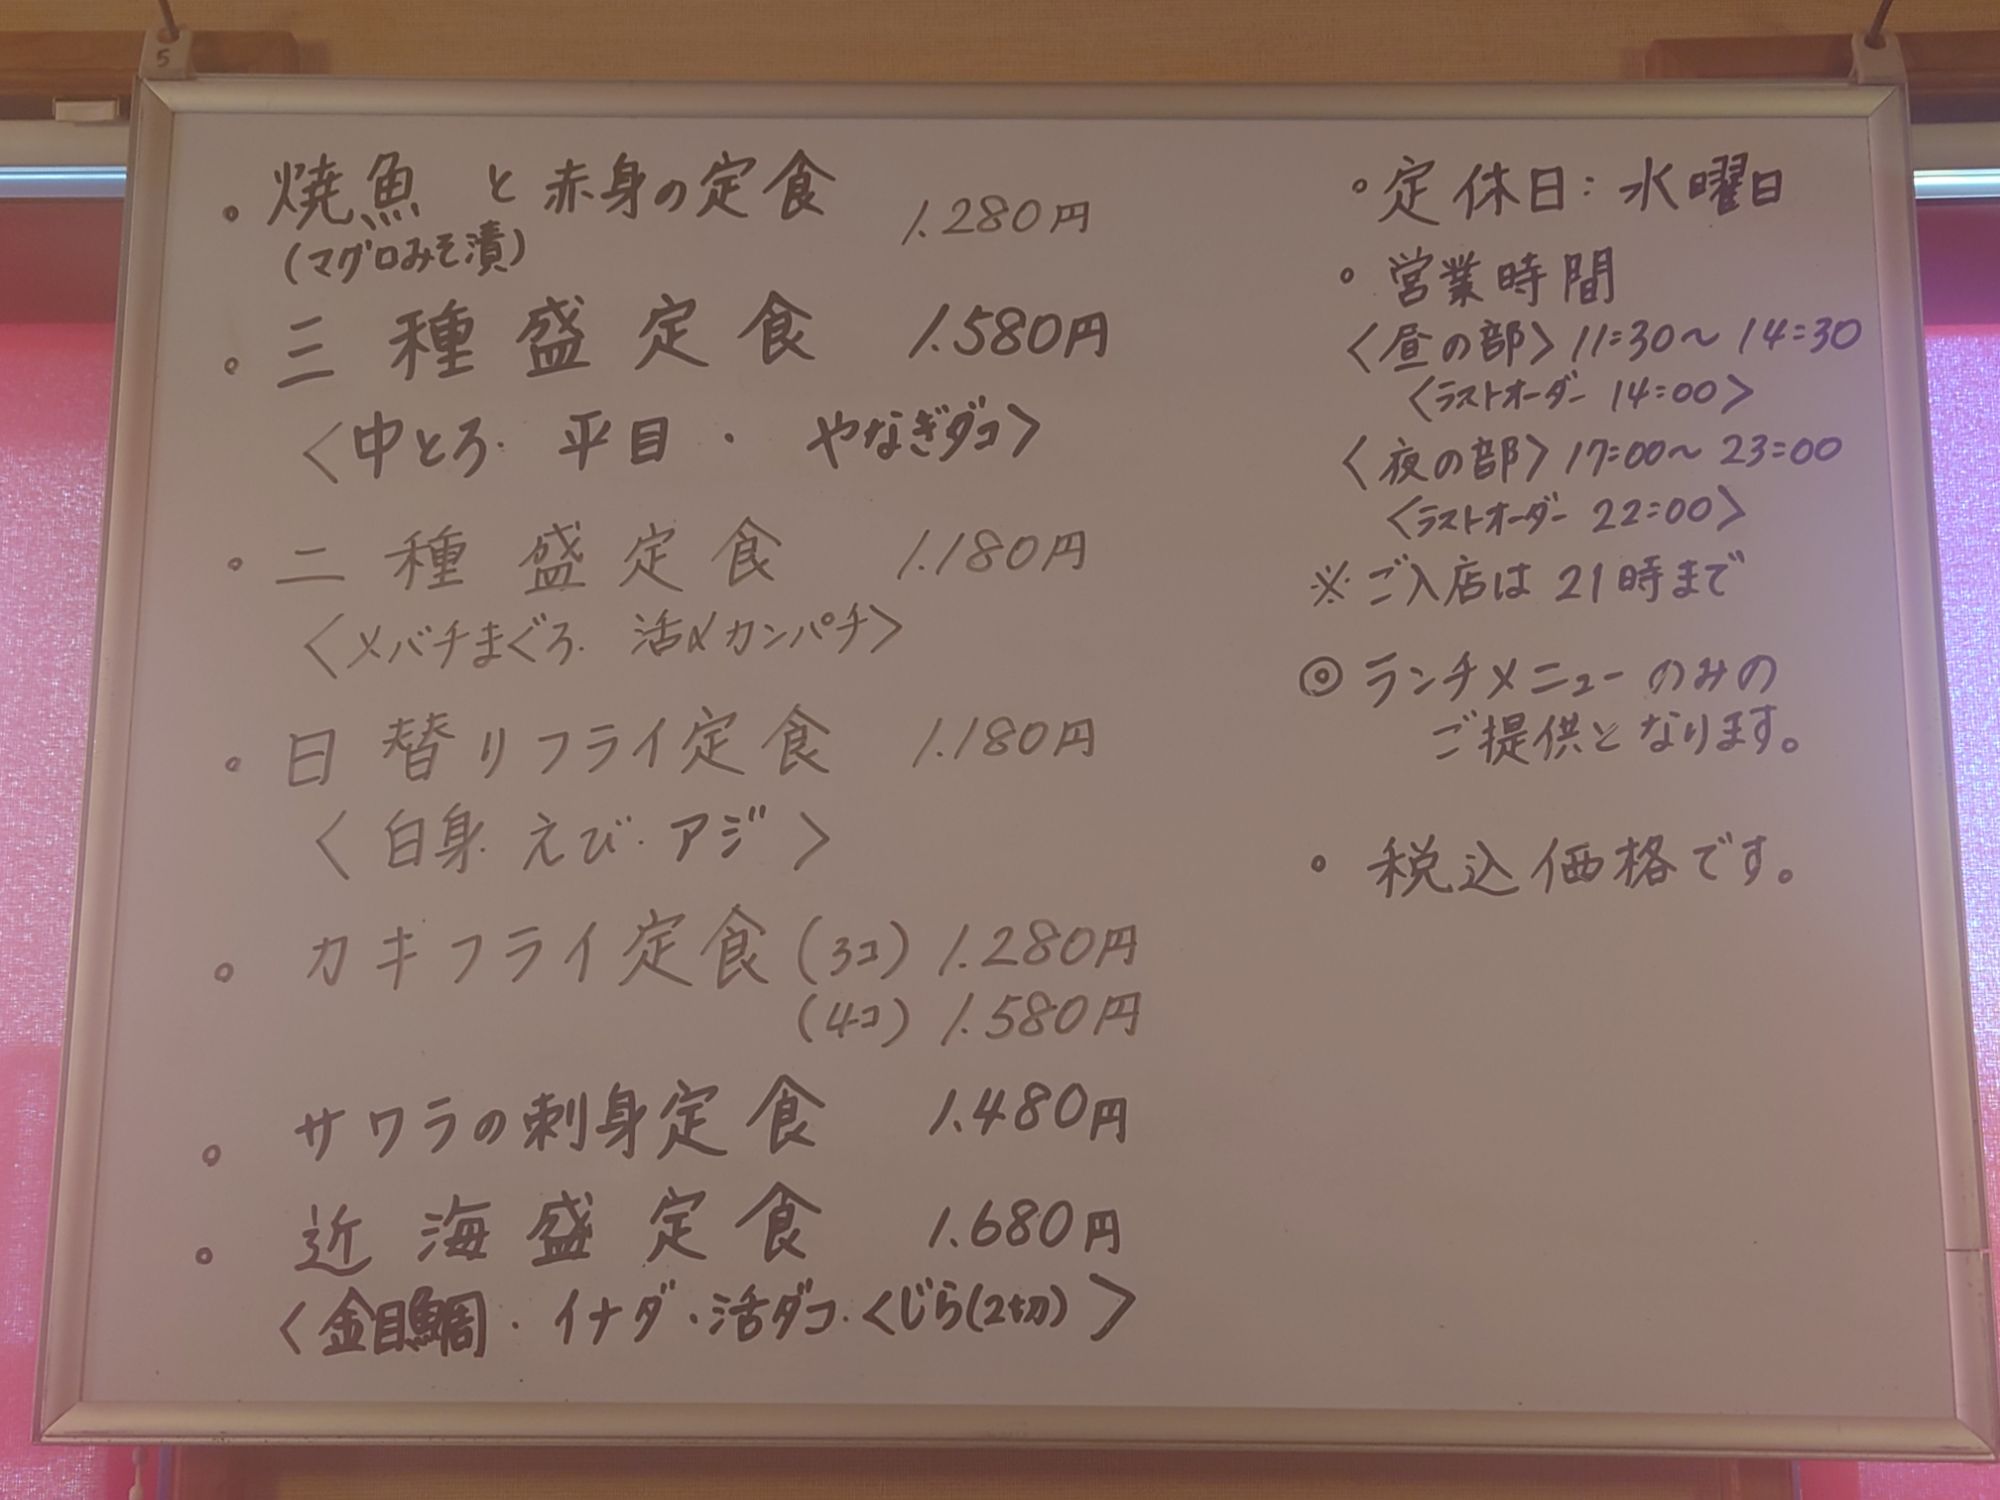 5
・焼魚 と 赤身の定食 1.280円
(マグロみそ漬)
・三種盛定食 1.580円
〈中とろ・平目・やなぎダコ〉
・二種盛定食 1.180円
〈メバチまぐろ・活〆カンパチ〉
・日替りフライ定食 1.180円
〈白身・えび・アジ〉
・カキフライ定食(3コ) 1.280円
(4コ) 1.580円
・サワラの刺身定食 1.480円
・近海盛定食 1.680円
〈金目鯛・イナダ・活ダコ・くじら(2切)〉
・定休日:水曜日
・営業時間
〈昼の部〉11:30~14:30
〈ラストオーダー 14:00〉
〈夜の部〉17:00~23:00
〈ラストオーダー 22:00〉
※ご入店は21時まで
◎ランチメニューのみの
ご提供となります。
・税込価格です。